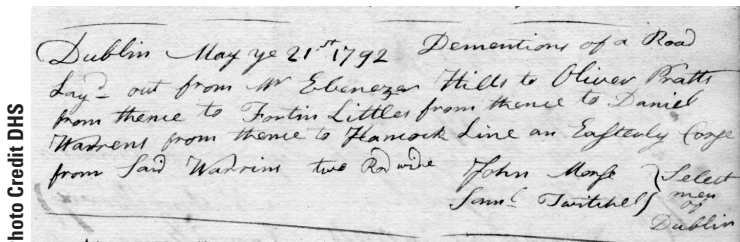 Dublin May ye 21st 1792 Dementions of a Road
Layd out from Mr Ebenezer Hills to Oliver Pratts
from thence to Fortin Littles from thence to Daniel
Warrens from thence to Hancock Line an Easterly Corse
from Said Warrins two Rod wide John Morse } Select
Saml Twitchell men
of
Dublin
hoto Credit DHS